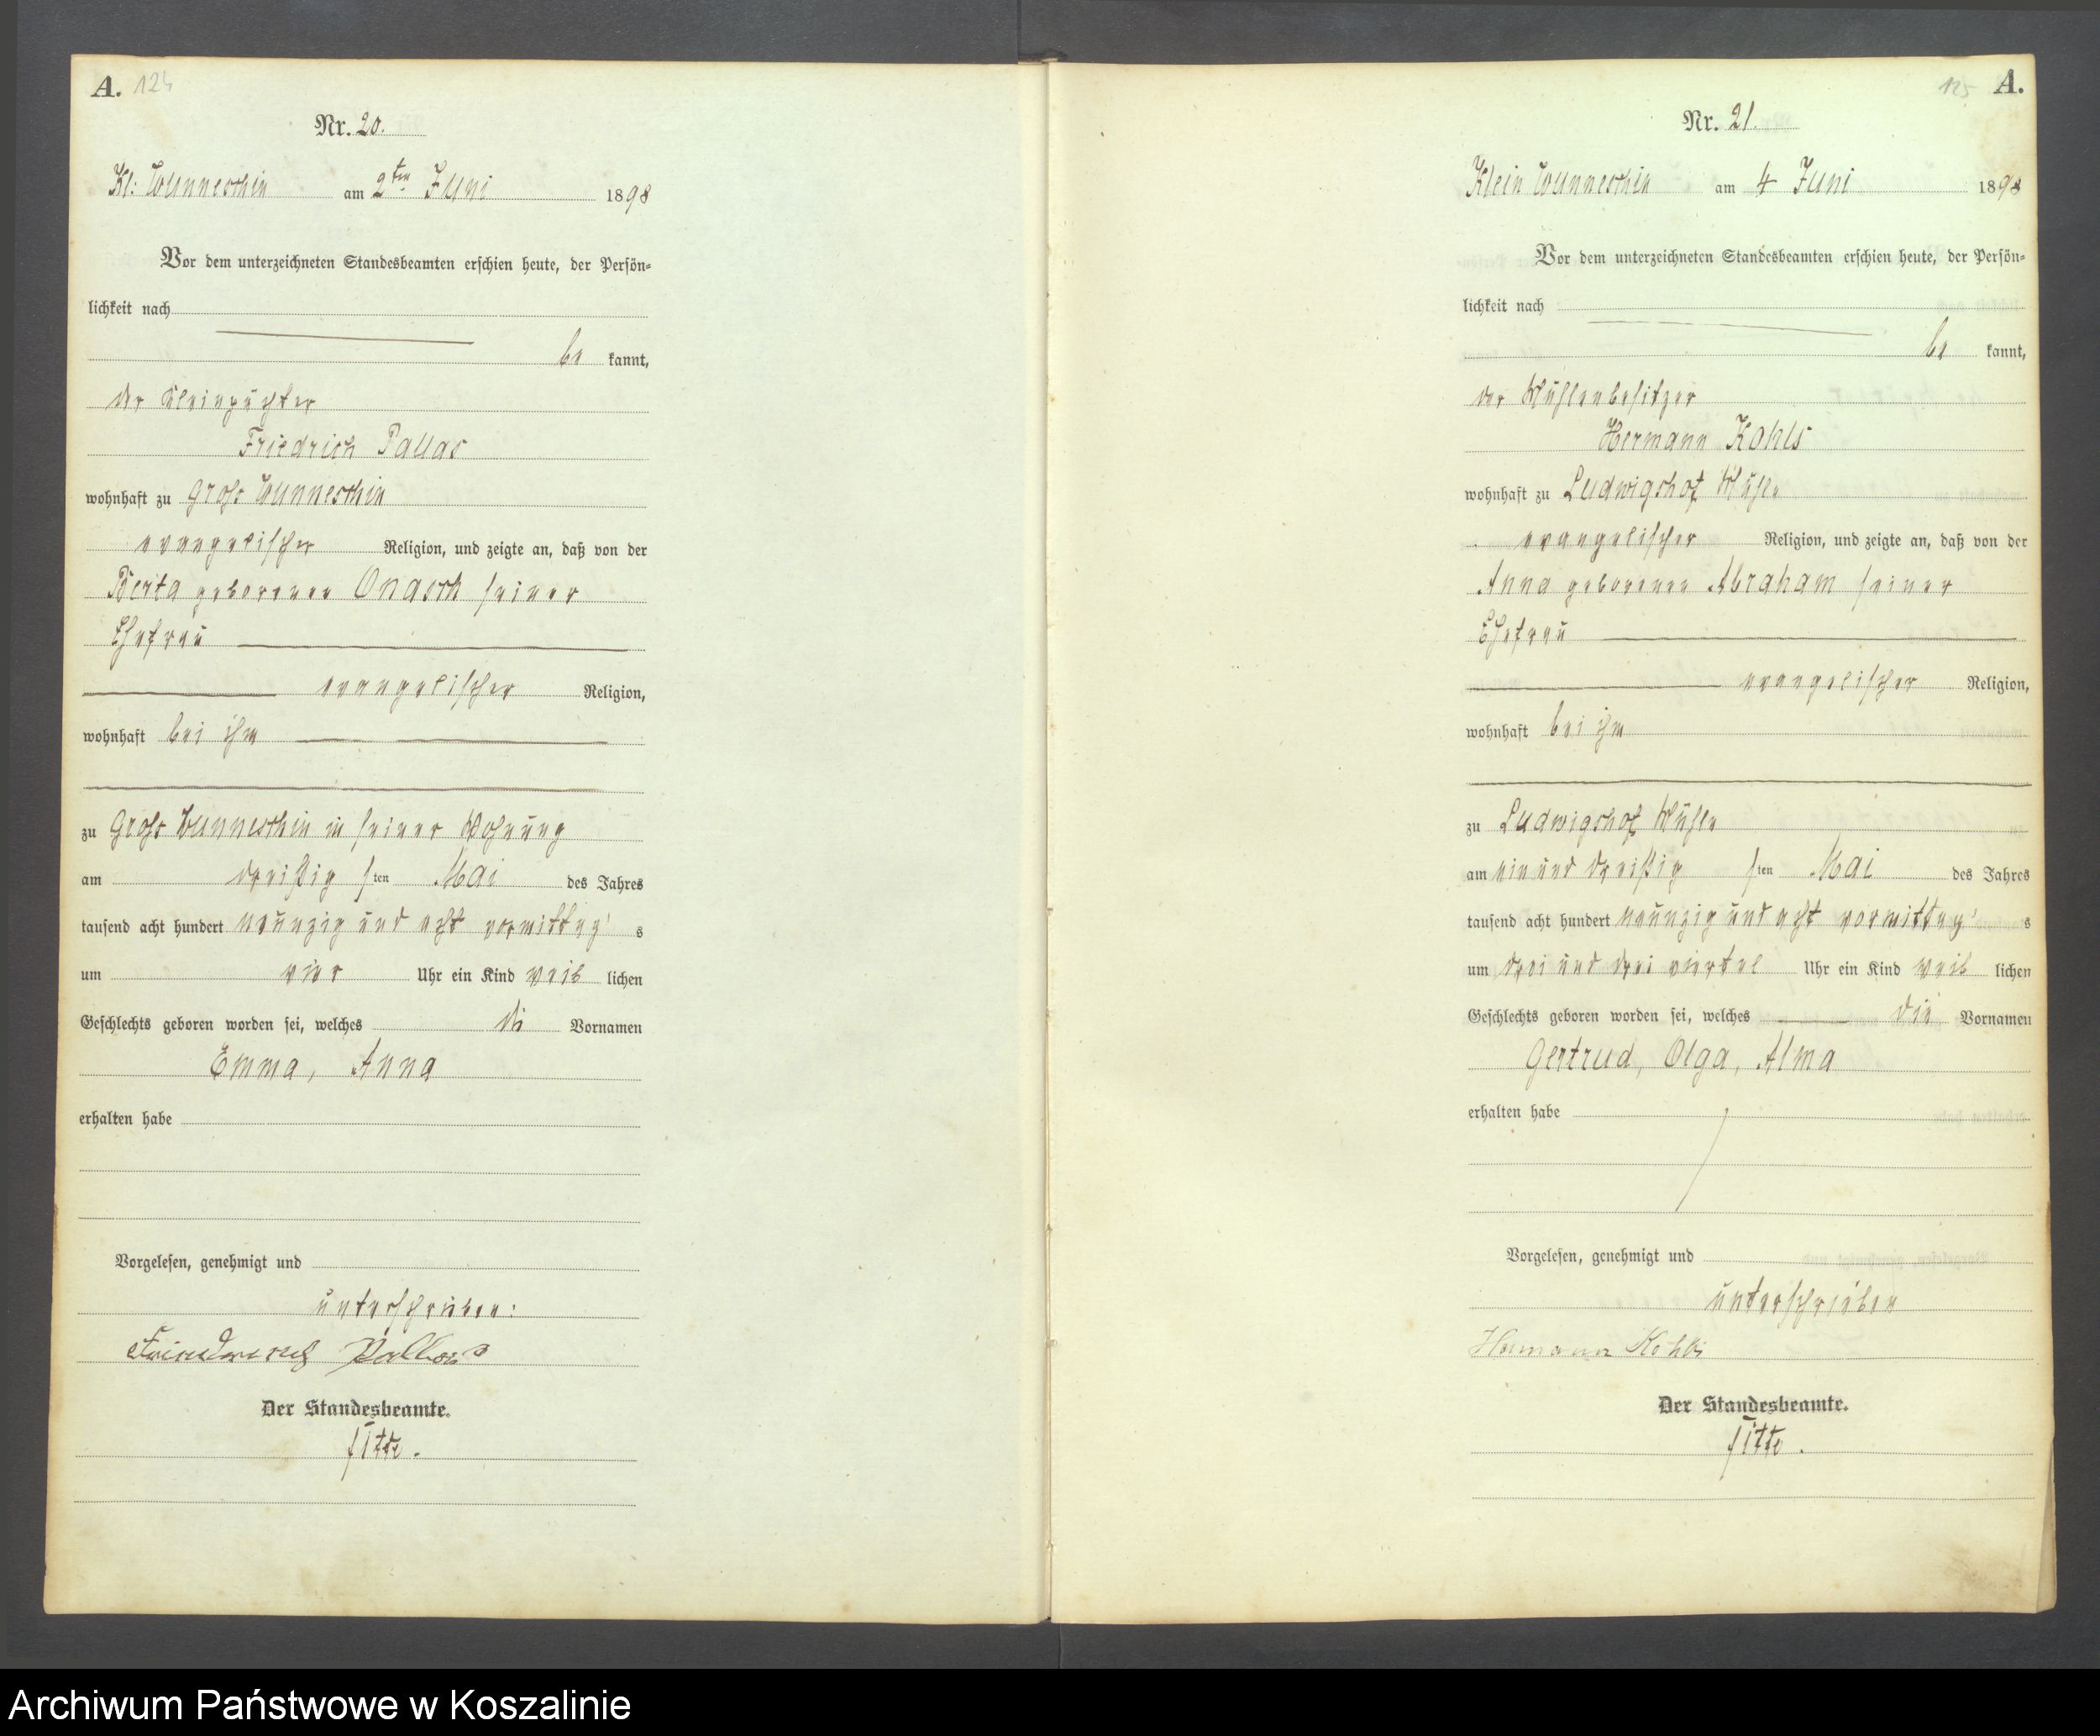 A. 124
Nr. 20.
Kl: Wunneschin am 2ten Juni 1898
Vor dem unterzeichneten Standesbeamten erschien heute, der Persön-
lichkeit nach
be kannt,
der Kleinpächter
Friedrich Pallas
wohnhaft zu Groß Wunneschin
evangelischer Religion, und zeigte an, daß von der
Berta geborenen Onasch seiner
Ehefrau
evangelischer Religion,
wohnhaft bei ihm
zu Groß Wunneschin in seiner Wohnung
am dreißig sten Mai des Jahres
tausend acht hundert neunzig und acht vormittag s
um vier Uhr ein Kind weib lichen
Geschlechts geboren worden sei, welches die Vornamen
Emma, Anna
erhalten habe
Vorgelesen, genehmigt und
unterschrieben:
Friedrich Pallas
Der Standesbeamte.
A. 125
Nr. 21.
Klein Wunneschin am 4 Juni 1898
Vor dem unterzeichneten Standesbeamten erschien heute, der Persön-
lichkeit nach
be kannt,
der Mühlenbesitzer
Hermann Kohls
wohnhaft zu Ludwigshof Mühle
evangelischer Religion, und zeigte an, daß von der
Anna geborenen Abraham seiner
Ehefrau
evangelischer Religion,
wohnhaft bei ihm
zu Ludwigshof Mühle
am einund dreißig sten Mai des Jahres
tausend acht hundert neunzig und acht vormittag s
um drei und drei viertel Uhr ein Kind weib lichen
Geschlechts geboren worden sei, welches die Vornamen
Gertrud, Olga, Alma
erhalten habe
Vorgelesen, genehmigt und
unterschrieben
Hermann Kohls
Der Standesbeamte.
Archiwum Państwowe w Koszalinie